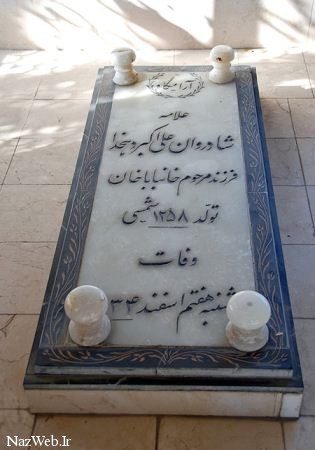 آرامگاه
علامه
شادروان علی اکبر دهخدا
فرزند مرحوم خانبابا خان
تولد ۱۲۵۸ شمسی
وفات
شنبه هفتم اسفند ۳۴
NazWeb.Ir